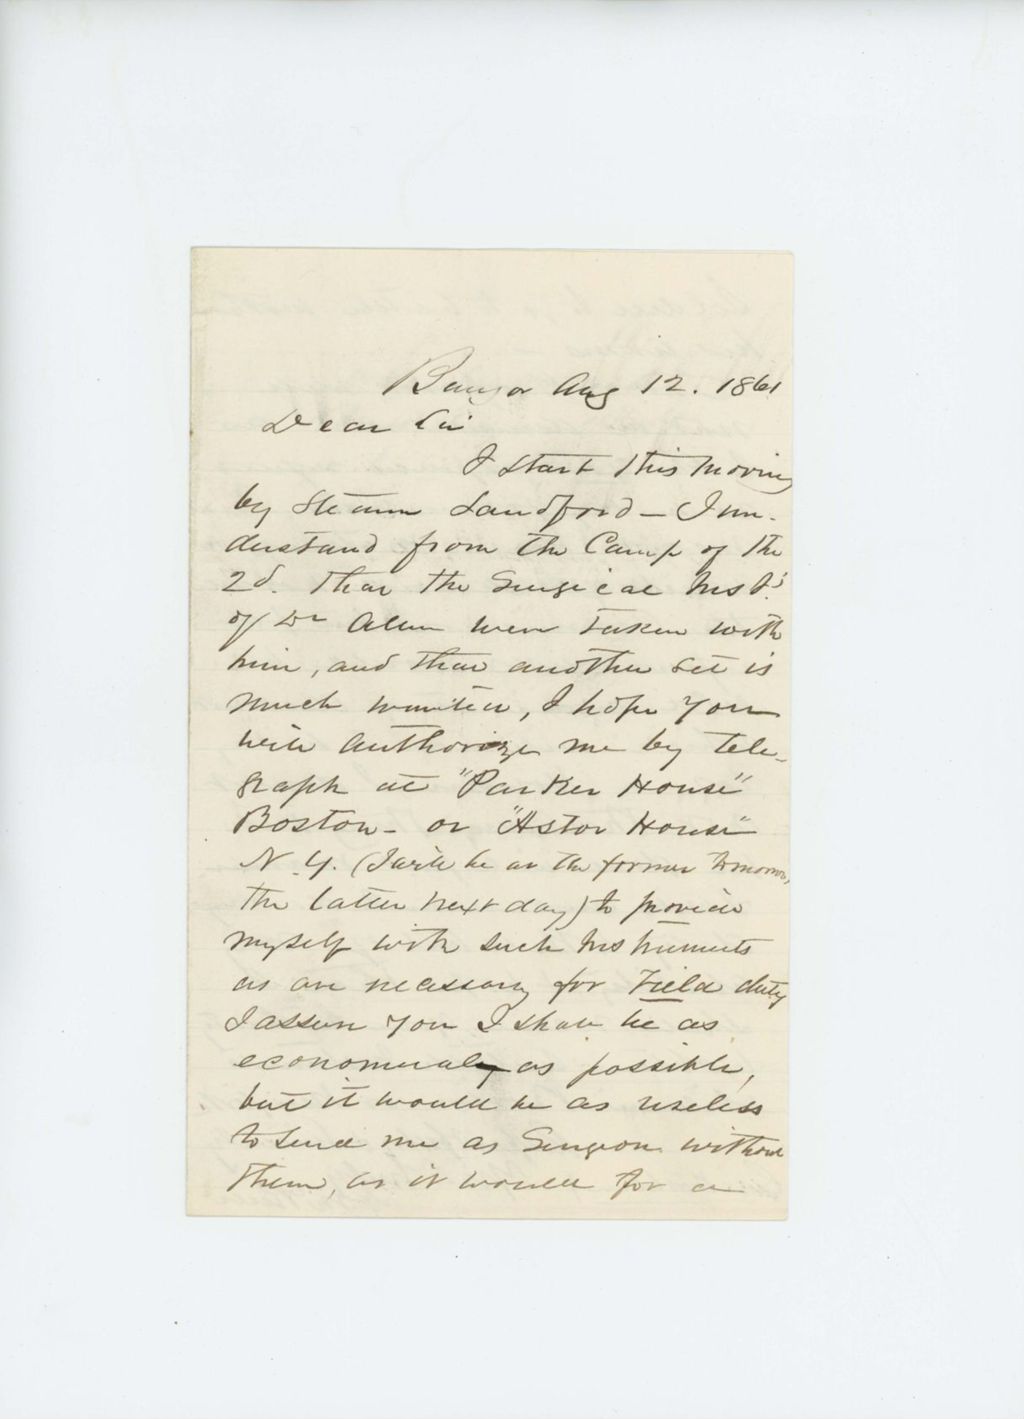 Bangor Aug 12. 1861
Dear Sir
I start this morning
by Steamer Sandford — I un-
derstand from the Camp of the
2d. that the Surgical Inst.s
of Dr Allen were taken with
him, and that another set is
much wanted, I hope you
will authorize me by tele-
graph at "Parker House"
Boston - or "Astor House"
N.Y. (I will be at the former tomorrow,
the latter next day) to provide
myself with such Instruments
as are necessary for Field duty
I assure you I shall be as
economical as possible,
but it would be as useless
to send me as Surgeon without
them, as it would for a